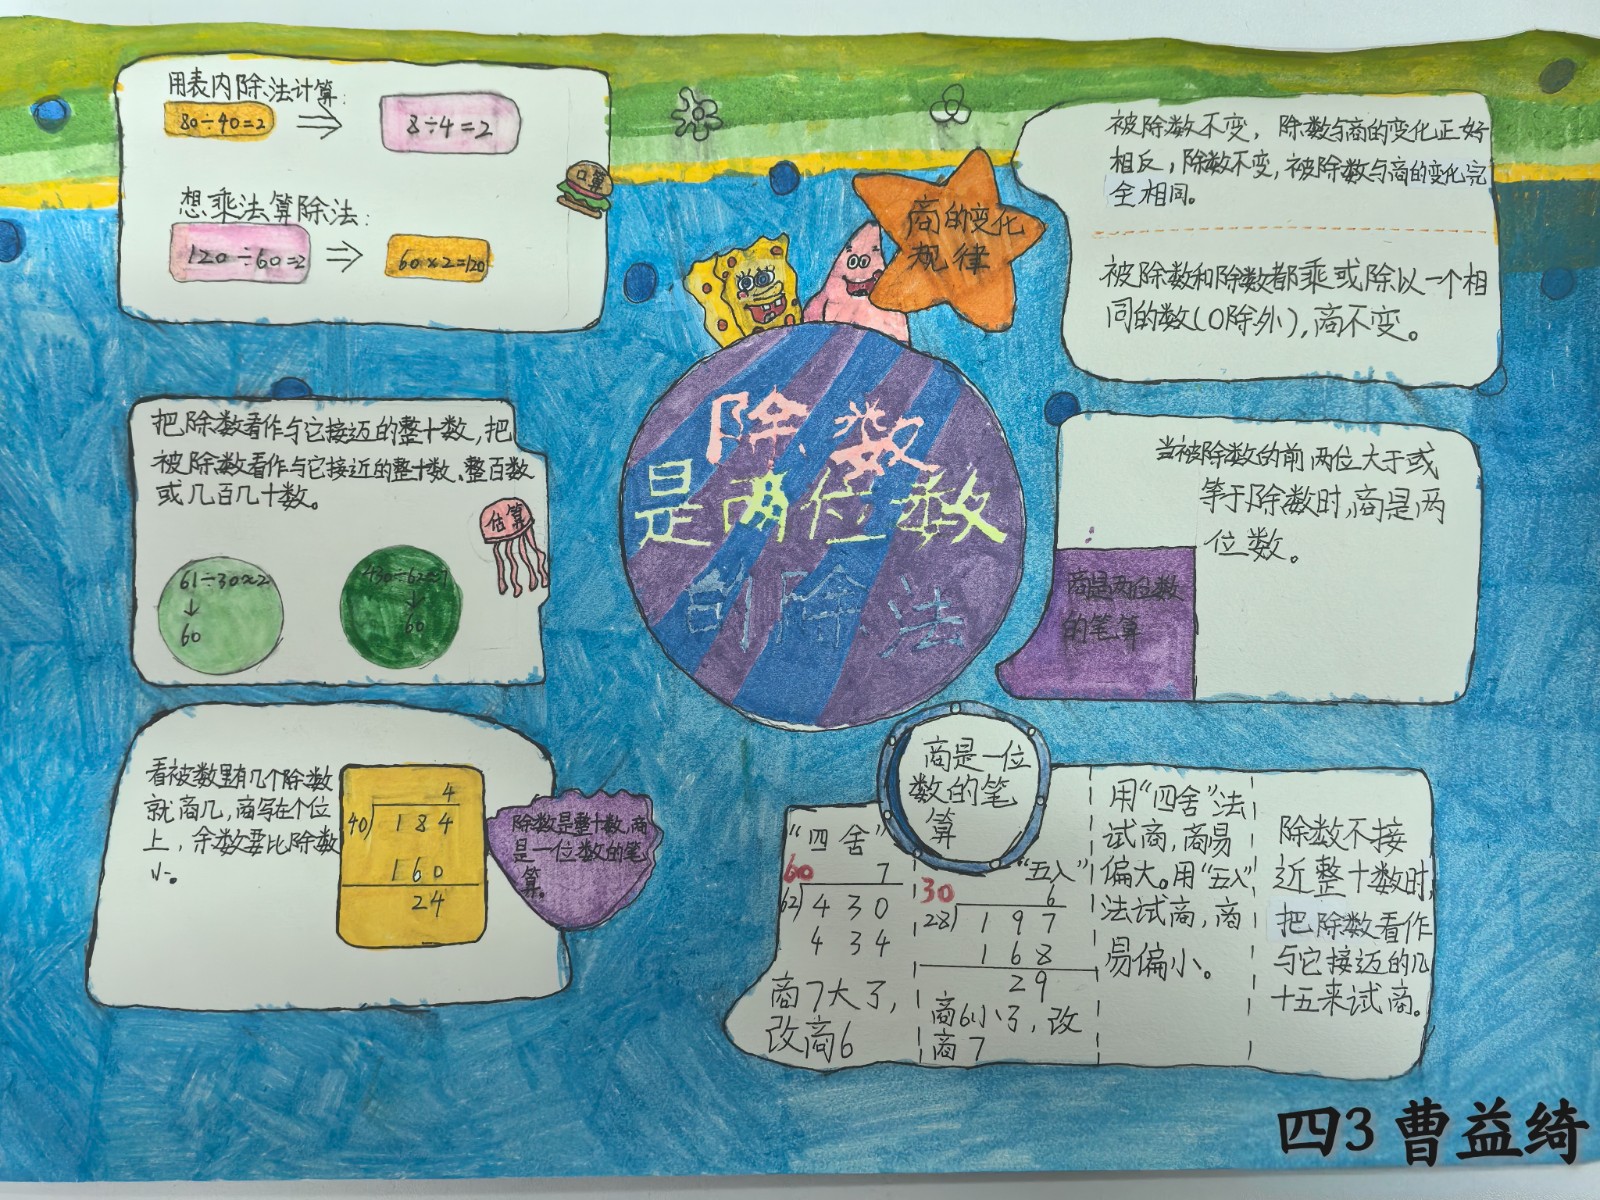 用表内除法计算:
80÷40=2
8÷4=2
想乘法算除法:
120÷60=2
60×2=120
口算
把除数看作与它接近的整十数,把
被除数看作与它接近的整十数、整百数
或几百几十数。
估算
61÷30≈2
60
430÷62≈7
60
看被数里有几个除数
就商几,商写在个位
上,余数要比除数
小。
4
40)184
160
24
除数是整十数,商
是一位数的笔
算。
商的变化
规律
除数
是两位数
的除法
被除数不变,除数与商的变化正好
相反,除数不变,被除数与商的变化完
全相同。
被除数和除数都乘或除以一个相
同的数(0除外),商不变。
当被除数的前两位大于或
等于除数时,商是两
位数。
商是两位数
的笔算
商是一位
数的笔
算
“四舍”
60
7
62)430
434
商7大了,
改商6
“五入”
30
6
28)197
168
29
商6小了,改
商7
用“四舍”法
试商,商易
偏大。用“五入”
法试商,商
易偏小。
除数不接
近整十数时,
把除数看作
与它接近的几
十五来试商。
四3 曹益绮